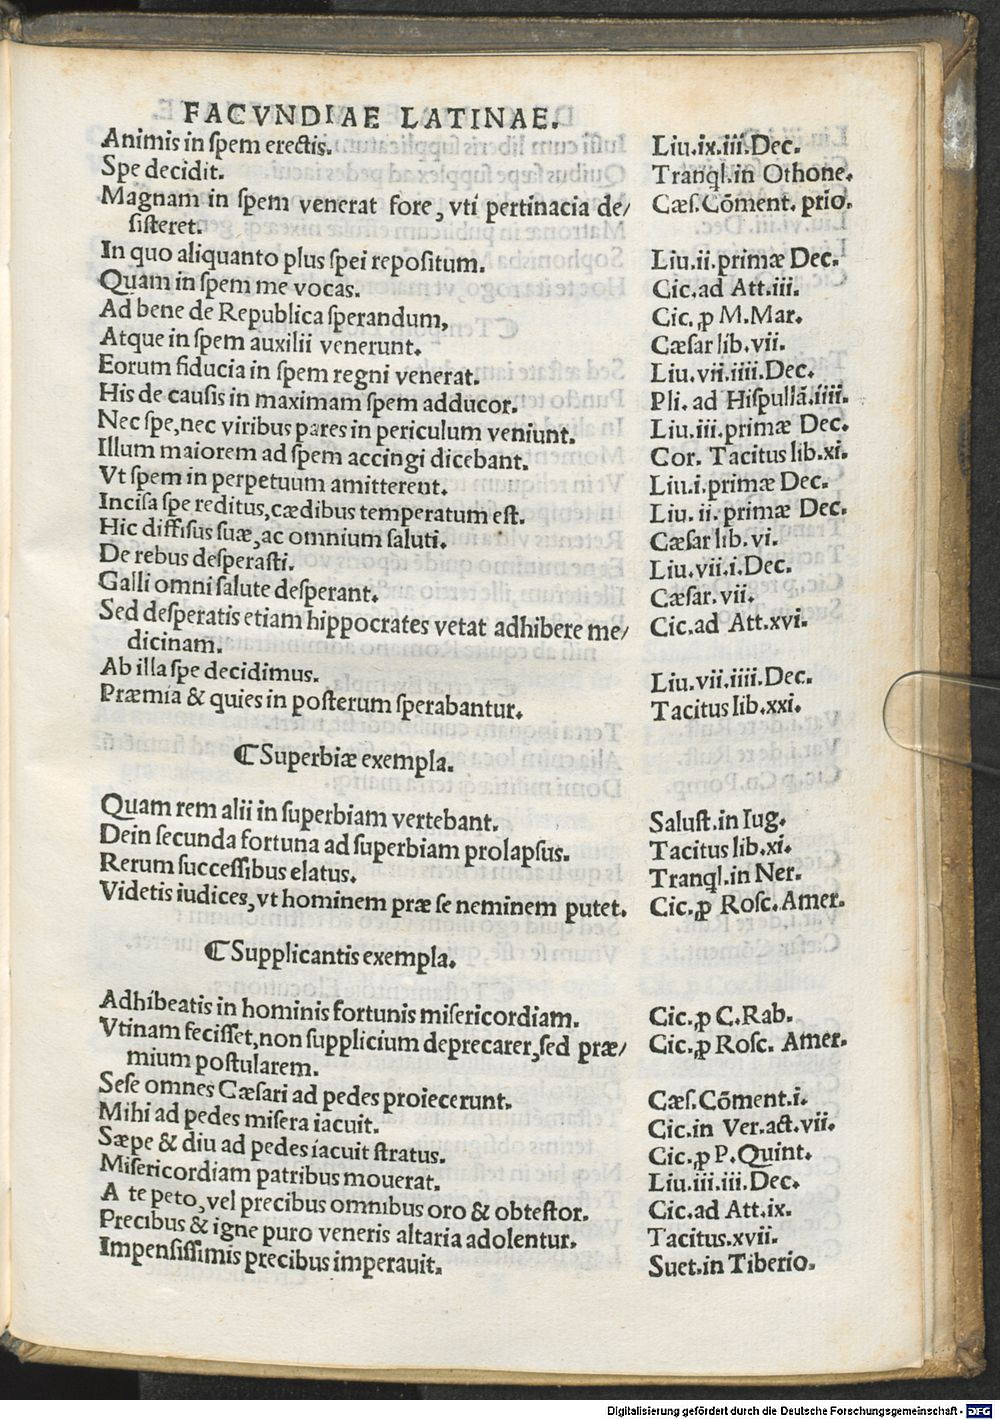 FACVNDIAE LATINAE.
Animis in ſpem erectis. Liu.ix.iii.Dec.
Spe decidit. Tranql.in Othone.
Magnam in ſpem venerat fore, vti pertinacia de/ Cæſ.Cōment. prio.
ſiſteret.
In quo aliquanto plus ſpei repoſitum. Liu.ii.primæ Dec.
Quam in ſpem me vocas. Cic.ad Att.iii.
Ad bene de Republica ſperandum, Cic.ꝓ M.Mar.
Atque in ſpem auxilii venerunt. Cæſar lib.vii.
Eorum fiducia in ſpem regni venerat. Liu.vii.iiii.Dec.
His de cauſis in maximam ſpem adducor. Pli.ad Hiſpullā.iiii.
Nec ſpe,nec viribus pares in periculum veniunt. Liu.iii.primæ Dec.
Illum maiorem ad ſpem accingi dicebant. Cor. Tacitus lib.xi.
Vt ſpem in perpetuum amitterent. Liu.i.primæ Dec.
Inciſa ſpe reditus,cædibus temperatum eſt. Liu.ii.primæ Dec.
Hic diffiſus ſuæ,ac omnium ſaluti. Cæſar lib.vi.
De rebus deſperaſti. Liu.vii.i.Dec.
Galli omni ſalute deſperant. Cæſar.vii.
Sed deſperatis etiam hippocrates vetat adhibere me/ Cic.ad Att.xvi.
dicinam.
Ab illa ſpe decidimus. Liu.vii.iiii.Dec.
Præmia & quies in poſterum ſperabantur. Tacitus lib.xxi.
¶ Superbiæ exempla.
Quam rem alii in ſuperbiam vertebant. Saluſt.in Iug.
Dein ſecunda fortuna ad ſuperbiam prolapſus. Tacitus lib.xi.
Rerum ſucceſſibus elatus. Tranql.in Ner.
Videtis iudices,vt hominem præ ſe neminem putet. Cic.ꝓ Roſc.Amer.
¶ Supplicantis exempla.
Adhibeatis in hominis fortunis miſericordiam. Cic.ꝓ C.Rab.
Vtinam feciſſet,non ſupplicium deprecarer,ſed præ/ Cic.ꝓ Roſc. Amer.
mium poſtularem.
Seſe omnes Cæſari ad pedes proiecerunt. Cæſ.Cōment.i.
Mihi ad pedes miſera iacuit. Cic.in Ver.act.vii.
Sæpe & diu ad pedes iacuit ſtratus. Cic.ꝓ P.Quint.
Miſericordiam patribus mouerat. Liu.iii.iii.Dec.
A te peto,vel precibus omnibus oro & obteſtor. Cic.ad Att.ix.
Precibus & igne puro veneris altaria adolentur. Tacitus.xvii.
Impenſiſſimis precibus imperauit. Suet.in Tiberio.
Digitalisierung gefördert durch die Deutsche Forschungsgemeinschaft - DFG